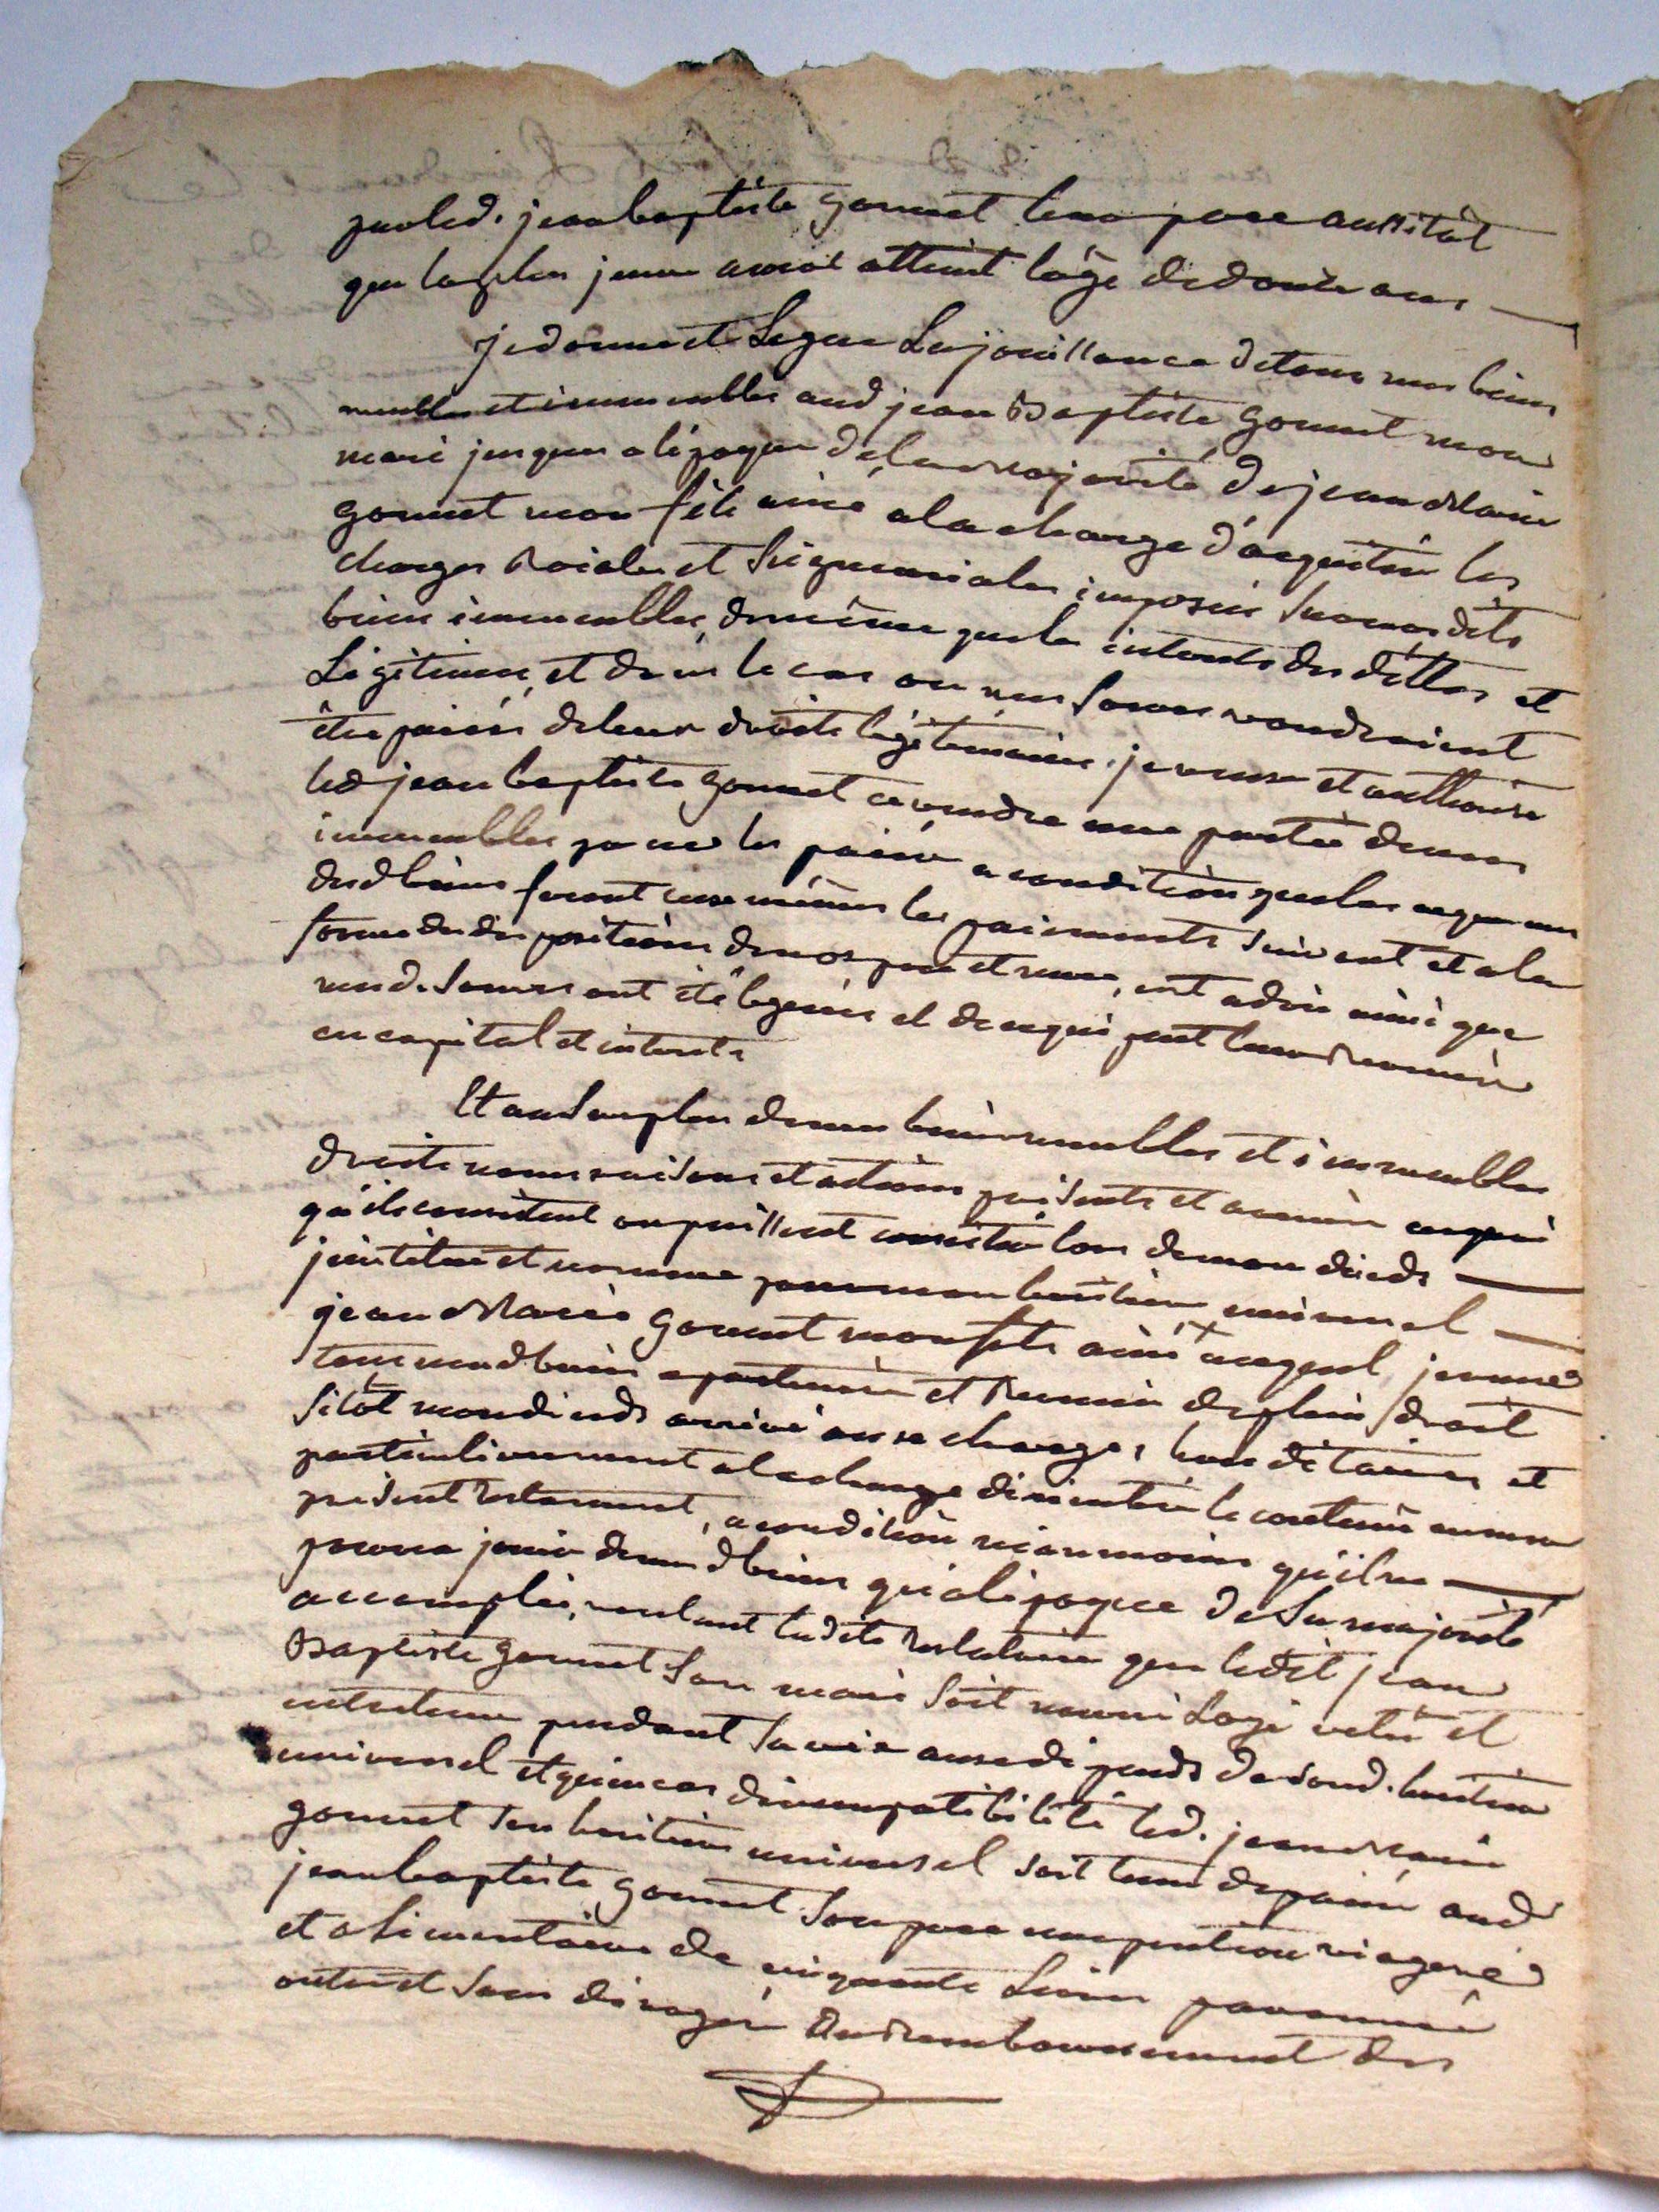 par led. jean baptiste gonnet leur pere aussitôt
que la plus jeune aura atteint l'age de douze ans
je donne et Legue La jouissance de tous mes biens
meubles et immeubles aud jean Baptiste gonnet mon
mari jusques a lépoque de la majorité de jean Marie
gonnet mon fils ainé a la charge d'acquitter les
charges Roiales et Seigneuriales imposées Sur mesdits
biens immeubles, de même que les interets des dettes et
Légitimes, et dans le cas ou mes Soeurs voudraient
être paiées de leur droits légitimaires. je veux et authorise
led jean baptiste gonnet a vendre une partie de mes
immeubles pour les paier a condition que les acquereurs
desd biens feront eux mêmes les paiements Suivant et a la
forme des dispositions de nos pere et mere, cest adire ainsi que
mesd. Soeurs ont été leguées et de ce qui peut leur Revenir
en capital et interets
Et au Surplus de mes biens meubles et immeubles
droits noms raisons et actions présents et avenir en quoi
qu'ils consistent ou puissent consister lors de mon décds
j'institue et nomme pour mon heritier universel
jean Marie gonnet mon fils ainé + auquel je veux
tous mesd biens apartenir et Revenir de plein droit
Sitôt mon décéds arrivé aux charges, hereditaires et
particulierement a la charge d'executer le contenu en mon
présent testament, a condition néanmoins qu'il ne
pourra jouir de mesd biens qu'a lépoque de Sa majorité
accomplie, voulant ladite testatrice que ledit jean
Baptiste gonnet Son mari Soit nourri Logé vetu et
entretenu pendant Sa vie aux dépends de Sond. heritier
universel et qu'en cas d'incompatibilité led. jean Marie
gonnet Son heritier universel Soit tenu de paier aud
jean baptiste gonnet Son pere une pention viagere
et alimentaire de cinquante Livres par année
outre et Sans déroger au Remboursement des